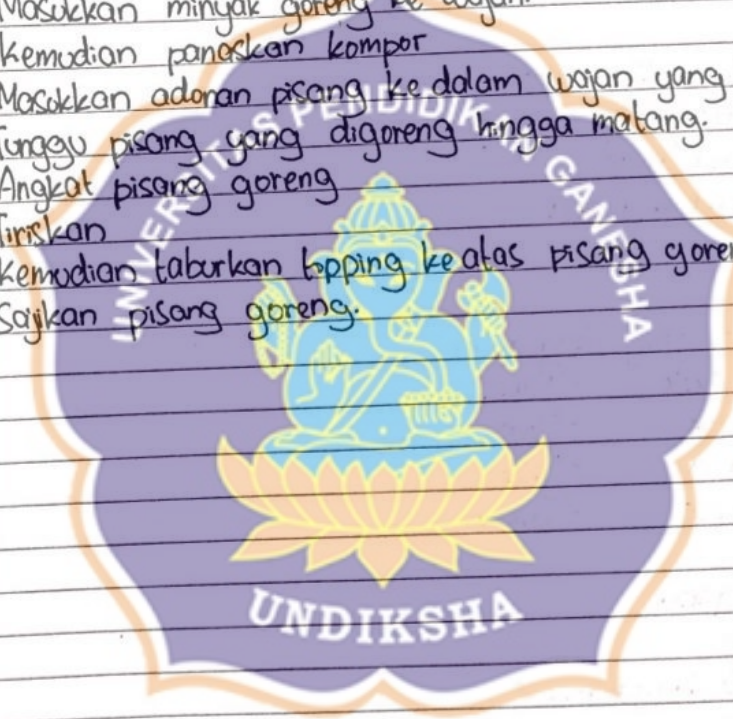 Masukkan minyak goreng ke wajan.
Kemudian panaskan kompor
Masukkan adonan pisang ke dalam wajan yang
Tunggu pisang yang digoreng hingga matang.
Angkat pisang goreng
Tiriskan
Kemudian taburkan topping ke atas pisang goren
Sajikan pisang goreng.
UNIVERSITAS PENDIDIKAN GANESHA
UNDIKSHA